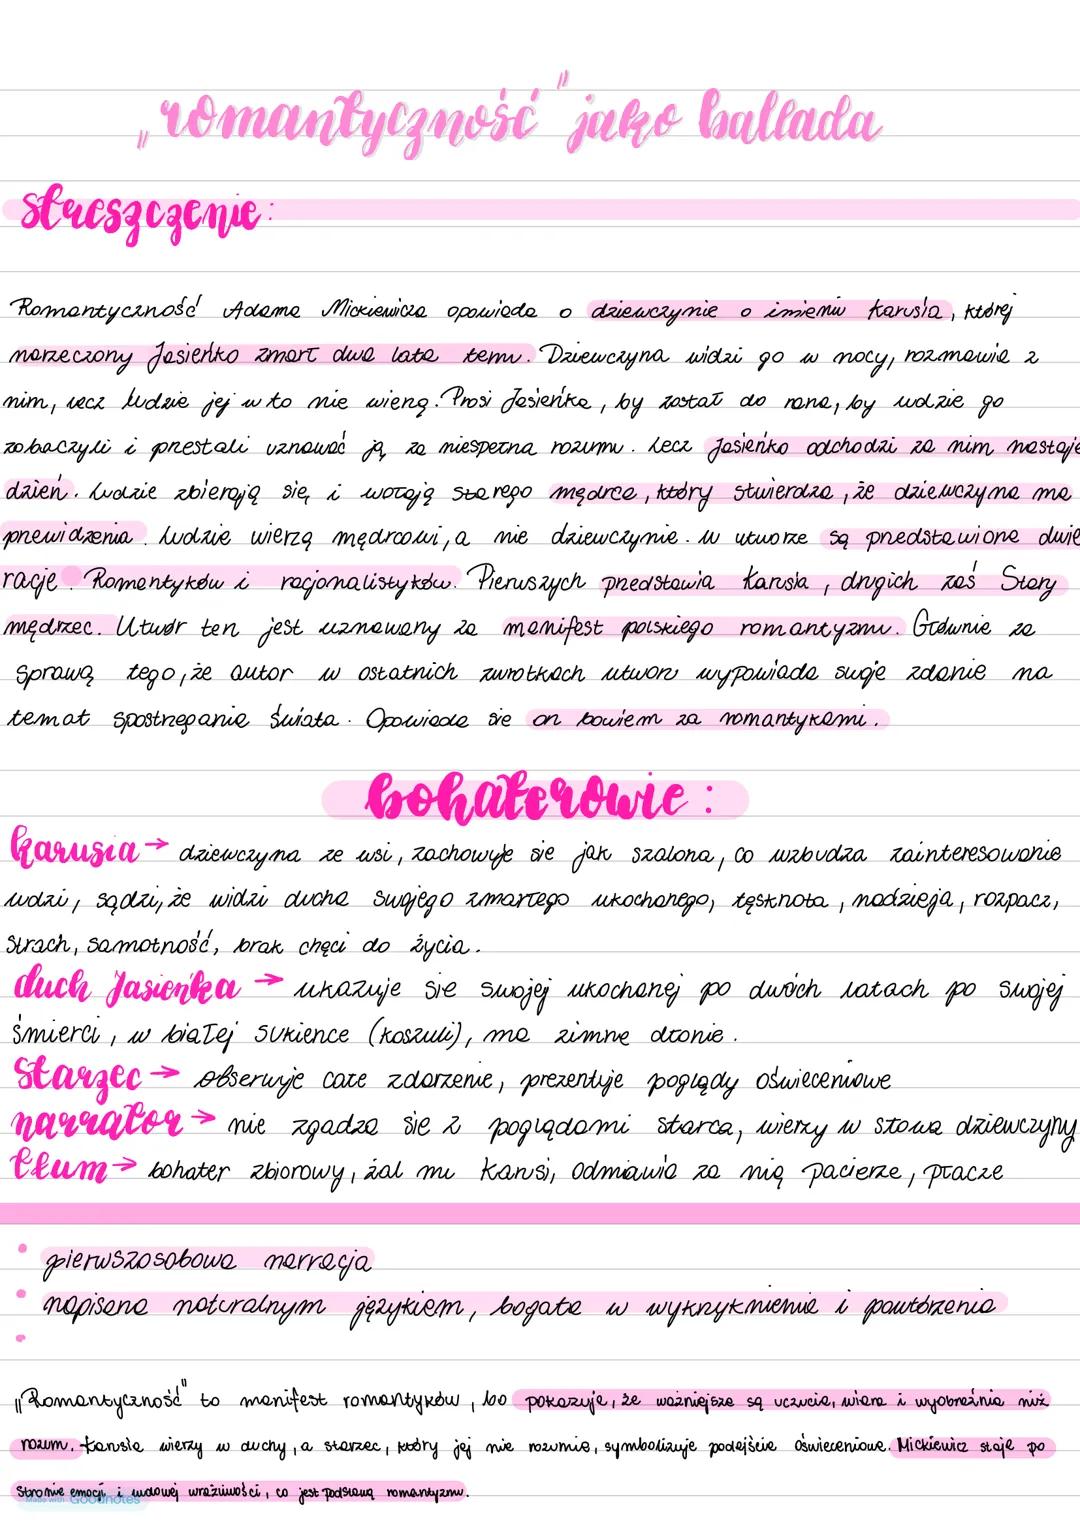 „romantyczność" jako ballada
streszczenie:
Romantyczność Adama Mickiewicza opowiada o dziewczynie o imieniu Karusia, której
narzeczony Jasieńko zmarł dwa lata temu. Dziewczyna widzi go w nocy, rozmawia z
nim, lecz ludzie jej w to nie wierzą. Prosi Jasieńka, by został do rana, by ludzie go
zobaczyli i przestali uznawać ją za niespełna rozumu. Lecz Jasieńko odchodzi za nim nastaje
dzień. Ludzie zbierają się i wołają starego mędrca, który stwierdza, że dziewczyna ma
przewidzenia. Ludzie wierzą mędrcowi, a nie dziewczynie. W utworze są przedstawione dwie
racje. Romantyków i racjonalistyków. Pierwszych przedstawia Karusia, drugich zaś Stary
mędrzec. Utwór ten jest uznawany za manifest polskiego romantyzmu. Głównie za
sprawą tego, że autor w ostatnich zwrotkach utworu wypowiada swoje zdanie na
temat spostrzegania świata. Opowiada się on bowiem za romantykami.
bohaterowie:
karusia → dziewczyna ze wsi, zachowuje się jak szalona, co wzbudza zainteresowanie
ludzi, sądzi, że widzi ducha swojego zmarłego ukochanego, tęsknota, nadzieja, rozpacz,
strach, samotność, brak chęci do życia.
duch Jasieńka → ukazuje się swojej ukochanej po dwóch latach po swojej
śmierci, w białej sukience (koszuli), ma zimne dłonie.
starzec → obserwuje całe zdarzenie, prezentuje poglądy oświeceniowe
narrator → nie zgadza się z poglądami starca, wierzy w słowa dziewczyny
tłum → bohater zbiorowy, żal mu Karusi, odmawia za nią pacierze, płacze
• pierwszosobowa narracja
• napisana naturalnym językiem, bogata w wykrzyknienia i powtórzenia
•
„Romantyczność" to manifest romantyków, bo pokazuje, że ważniejsze są uczucia, wiara i wyobraźnia niż
rozum. Karusia wierzy w duchy, a starzec, który jej nie rozumie, symbolizuje podejście oświeceniowe. Mickiewicz staje po
stronie emocji i ludowej wrażliwości, co jest podstawą romantyzmu.
Made with Goodnotes